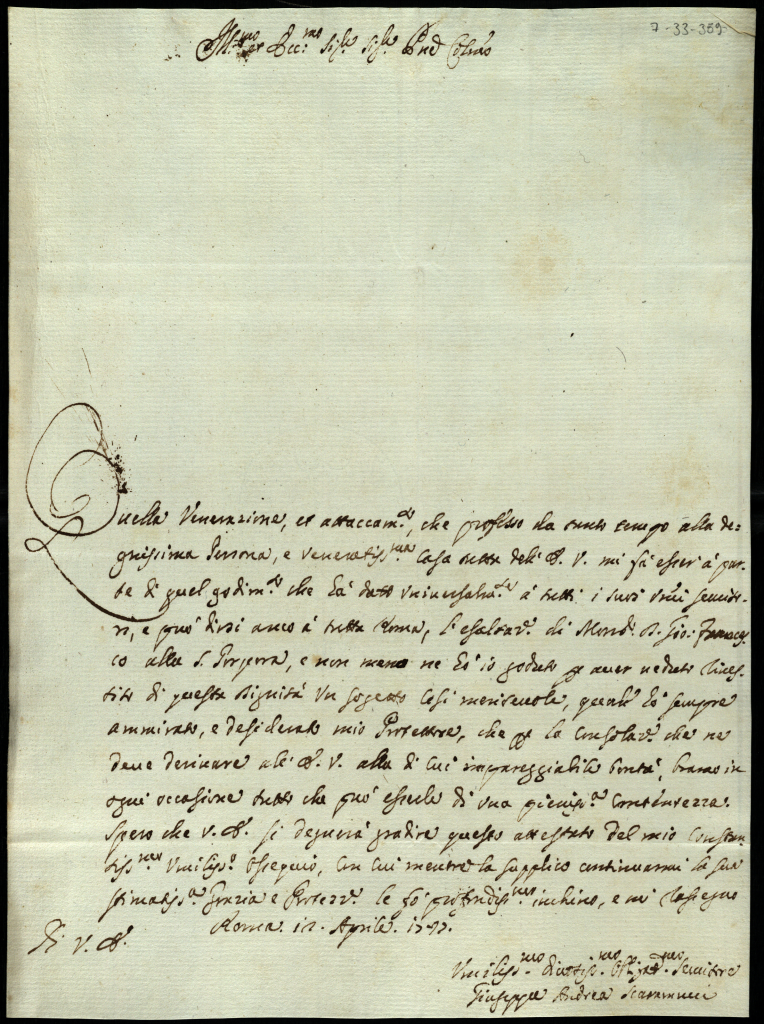 7-33-359
Ill.mo et Ecc.mo Sig.re Sig.re Pne Col.mo
Quella Venerazione, et attaccam.to, che professo da tanto tempo alla de=
gnissima Persona, e veneratiss.ma Casa tutta dell' E. V. mi fà esser à par=
te di quel godim.to che hà dato universalm.te à tutti i suoi Umi servito=
ri, e può dirsi anco à tutta Roma, l'esaltaz.e di Mons.r D. Gio: Frances=
co alla S. Porpora, e non meno ne hò io goduto p aver veduto rives=
tito di questa Dignità un sogetto così meritevole, quant' hò sempre
ammirato, e desiderato mio Protettore, che p la consolaz.e che ne
deve derivare all' E. V. alla di cui impareggiabile bontà, bramo in
ogni occasione tutto che può esserle di una pieniss.a contentezza.
Spero che V. E. si degnerà gradire questo attestato del mio constan=
tiss.mo Umiliss.o Ossequio, con cui mentre la supplico continuarmi la sua
stimatiss.a Grazia e Protez.e le fò profondiss.mo inchino, e mi rassegno
Di V. E. Roma 12. Aprile.
Umiliss.mo Divotiss.mo Obligat.mo Servitore
Giuseppe Andrea Scaramucci